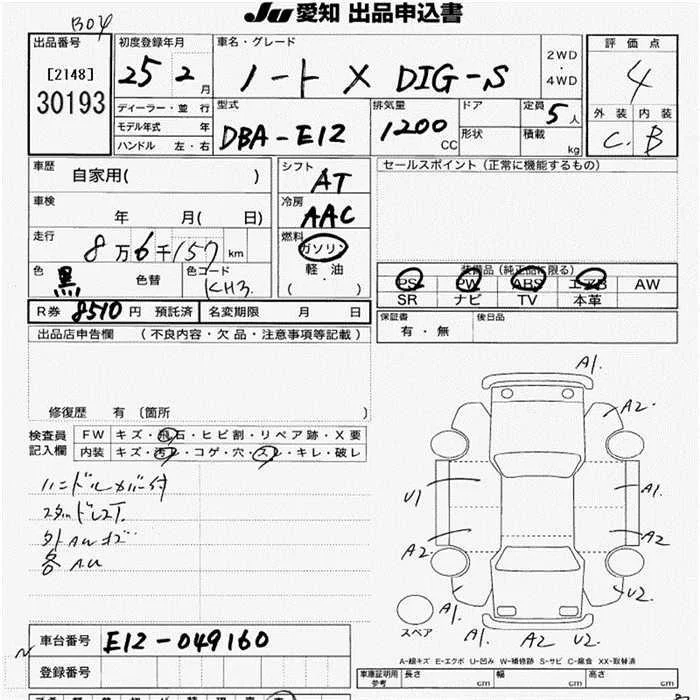 JU 愛知 出品申込書
B04
出品番号
[2148]
30193
初度登録年月
25 2 月
ディーラー・並 行
モデル年式 年
ハンドル 左・右
車名・グレード
ノート X DIG-S
2WD
・
4WD
型式
DBA-E12
排気量
1200 CC
ドア
形状
定員
5 人
積載
kg
評価点
4
外装 内装
C. B
車歴
自家用( )
車検
年 月( 日)
走行
8 万 6 千 157 km
色
黒
色替
色コード
KH3
シフト
AT
冷房
AAC
燃料
ガソリン
・
軽 油
( )
セールスポイント (正常に機能するもの)
装備品 (純正品に限る)
PS PW ABS エアB AW
SR ナビ TV 本革
R券 8510 円 預託済
名変期限 月 日
保証書
有・無
後日品
出品店申告欄 (不良内容・欠品・注意事項等記載)
修復歴 有 〔箇所 〕
検査員
記入欄
FW キズ・飛石・ヒビ割・リペア跡・X要
内装 キズ・汚レ・コゲ・穴・スレ・キレ・破レ
ハンドルカバー付
外AUキズ
各AU
A1.
A2.
U1
A1.
A2.
A2
A1.
U2
A1.
A2
U2.
スペア
A-線キズ E-エクボ U-凹み W-補修跡 S-サビ C-腐食 XX-取替済
車台番号
E12-049160
登録番号
車庫証明用
参考
長さ
cm
幅
cm
高さ
cm